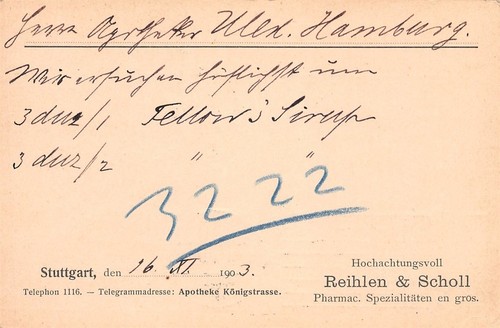 Herrn Apotheker Ulex. Hamburg.
Wir ersuchen höflichst um
3 duz/1 Fellow's Sirup
3 duz/2 " "
3222
Stuttgart, den 16. XI. 1903.
Telephon 1116. — Telegrammadresse: Apotheke Königstrasse.
Hochachtungsvoll
Reihlen & Scholl
Pharmac. Spezialitäten en gros.